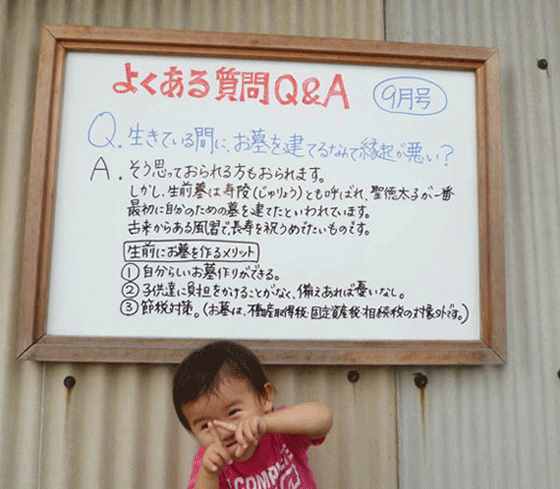 よくある質問Q&A
9月号
Q. 生きている間に、お墓を建てるなんて縁起が悪い?
A. そう思っておられる方もおられます。
しかし、生前墓は寿陵(じゅりょう)とも呼ばれ、聖徳太子が一番
最初に自分のための墓を建てたといわれています。
古来からある風習で、長寿を祝うめでたいものです。
生前にお墓を作るメリット
① 自分らしいお墓作りができる。
② 子供達に負担をかけることがなく、備えあれば憂いなし。
③ 節税対策。(お墓は、不動産取得税・固定資産税・相続税の対象外です。)